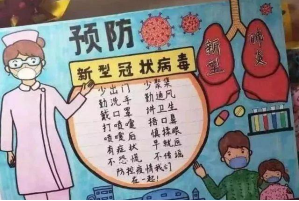 预防
新型冠状病毒
少出门 少聚集
勤洗手 勤通风
戴口罩 讲卫生
打喷嚏 捂口鼻
喷嚏后 慎揉眼
有症状 早就医
不恐慌 不传谣
防控疫情我们
在一起!
新型
肺炎